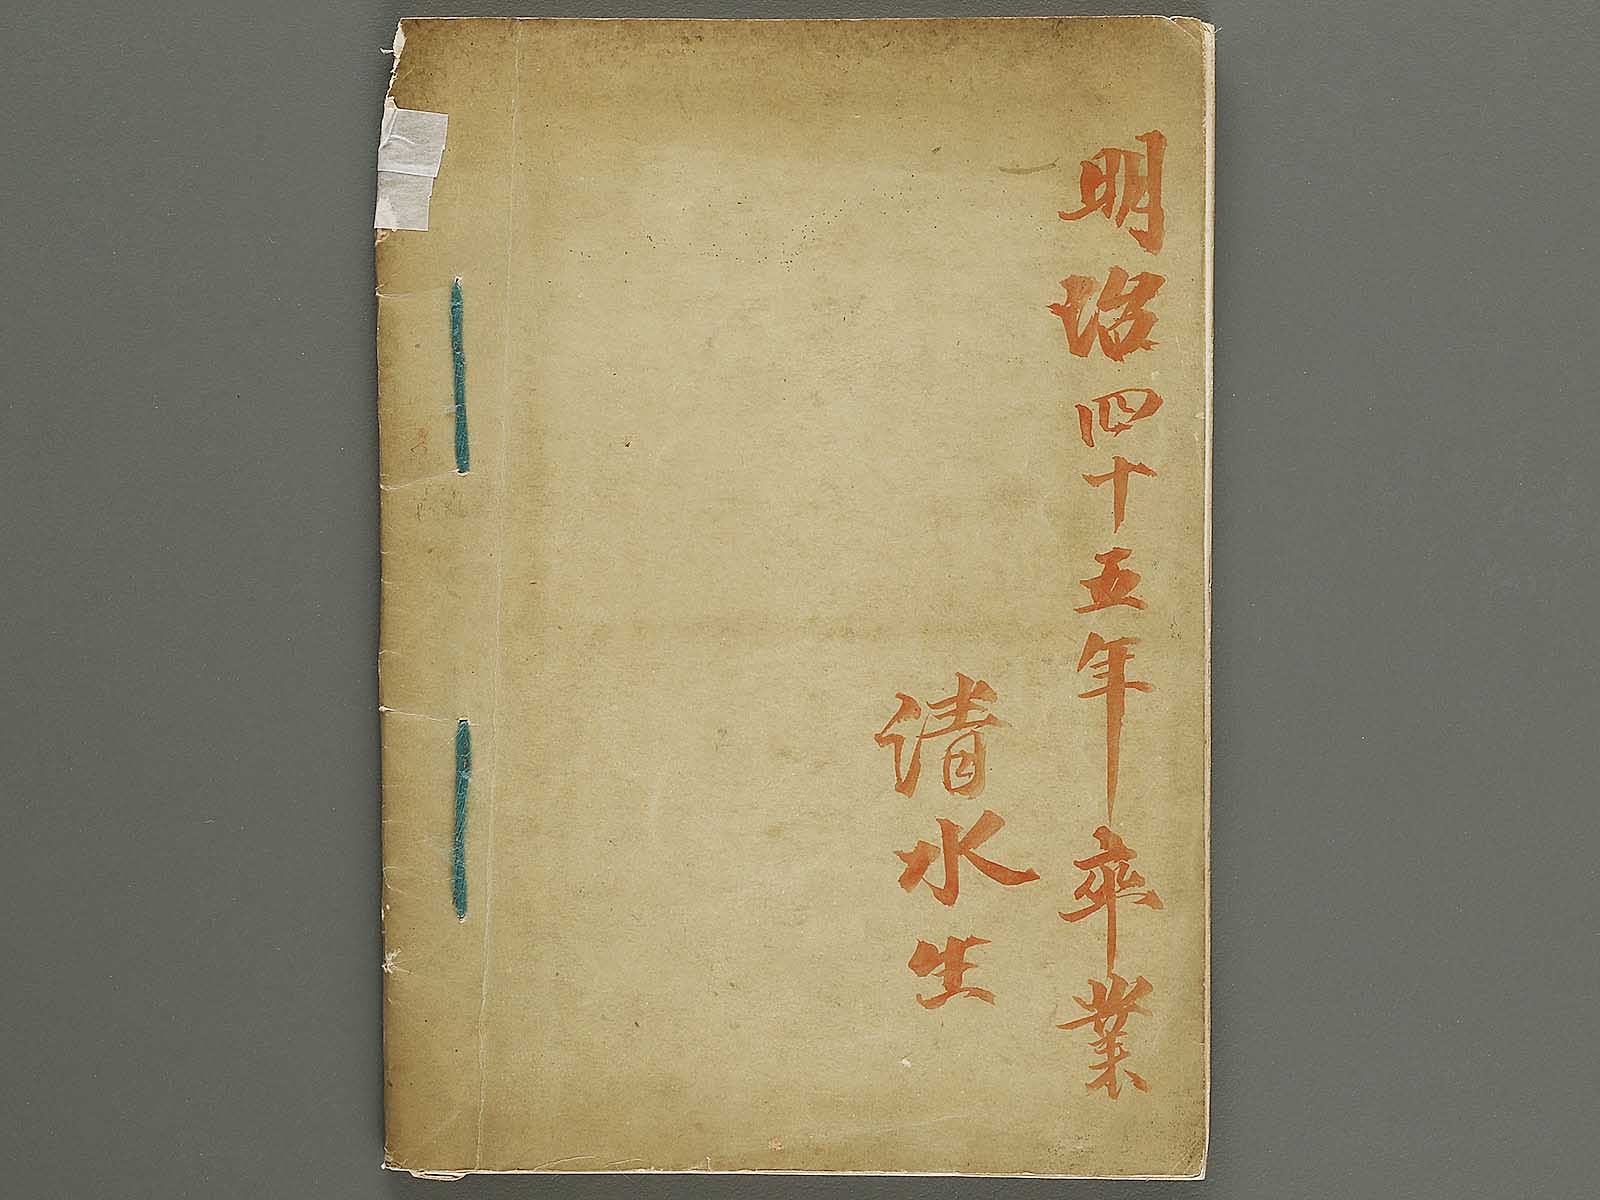 明治四十五年卒業
清水生